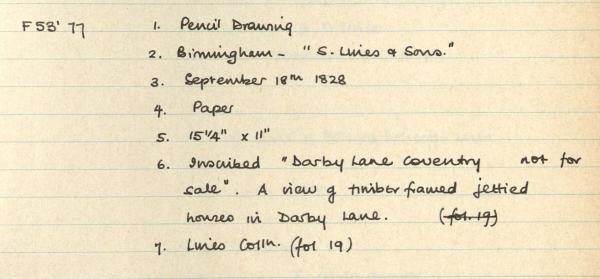 F53'77 1. Pencil Drawing
2. Birmingham - "S. Lines & Sons."
3. September 18th 1828
4. Paper
5. 15 1/4" x 11"
6. Inscribed "Darby Lane Coventry not for
sale". A view of timber framed jettied
houses in Darby Lane. (fol. 19)
7. Lines Colln. (fol 19)